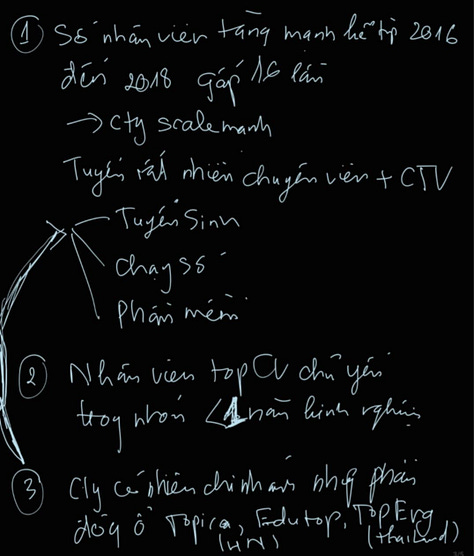 ① Số nhân viên tăng mạnh kể từ 2016
đến 2018 gấp 16 lần
→ cty scale mạnh
Tuyển rất nhiều chuyên viên + CTV
Tuyển Sinh
chạy số
phần mềm
② Nhân viên topCV chủ yếu
trong nhóm < 1 năm kinh nghiệm
③ Cty có nhiều chi nhánh nhưng phần
đông ở Topica, Edutop, TopEng
(HN) (thailand)